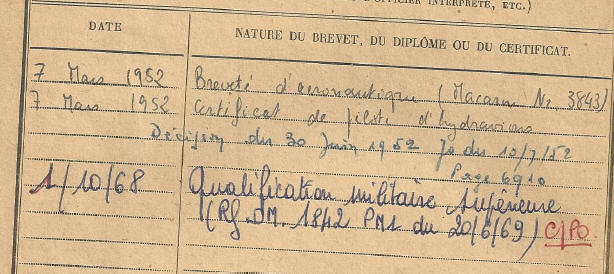 D'OFFICIER INTERPRÈTE, ETC.)
DATE
NATURE DU BREVET, DU DIPLÔME OU DU CERTIFICAT.
7 Mars 1952 Breveté d'aeronautique (Macaron N: 3843)
7 Mars 1952 Certificat de pilote d'hydravions
Décision du 30 Juin 1952 Jo du 10/7/52
Page 6910
1/10/68 Qualification militaire Supérieure
(Rf. DM. 1842 PM1 du 20/6/69) C/PO